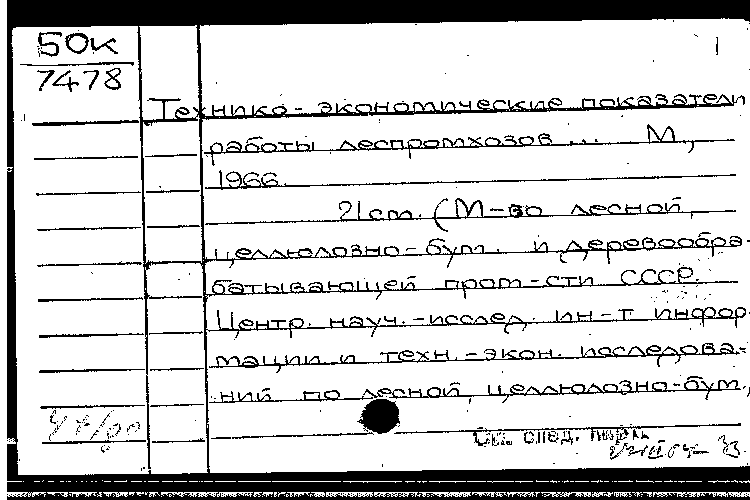 50к
7478
1
Технико-экономические показатели
работы леспромхозов ... М.,
1966.
21 см. (М-во лесной,
целлюлозно-бум. и деревообра-
батывающей пром-сти СССР.
Центр. науч.-исслед. ин-т инфор-
мации и техн.-экон. исследова-
ний по лесной, целлюлозно-бум.,
См. след. карт.